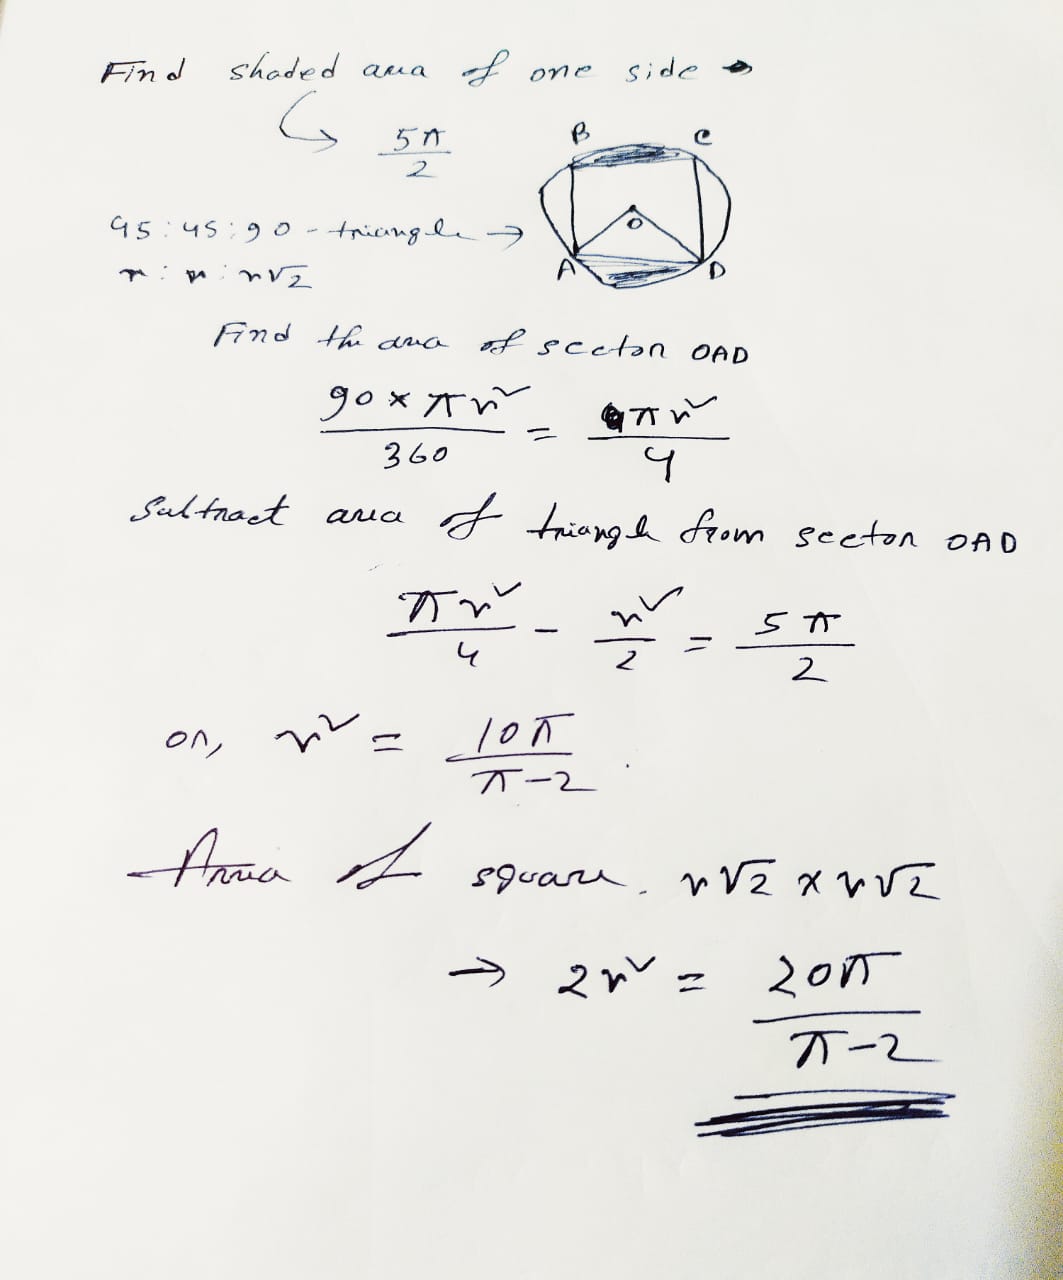 Find shaded area of one side →
5π/2
B C
45:45:90 - triangle →
O
r : r : r√2
A D
Find the area of sector OAD
90 × πr²/360 = πr²/4
Subtract area of triangle from sector OAD
πr²/4 - r²/2 = 5π/2
or, r² = 10π/π-2
Area of square. r√2 × r√2
→ 2r² = 20π/π-2